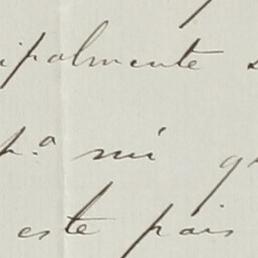 ipalmente
p.ª mi
este pais